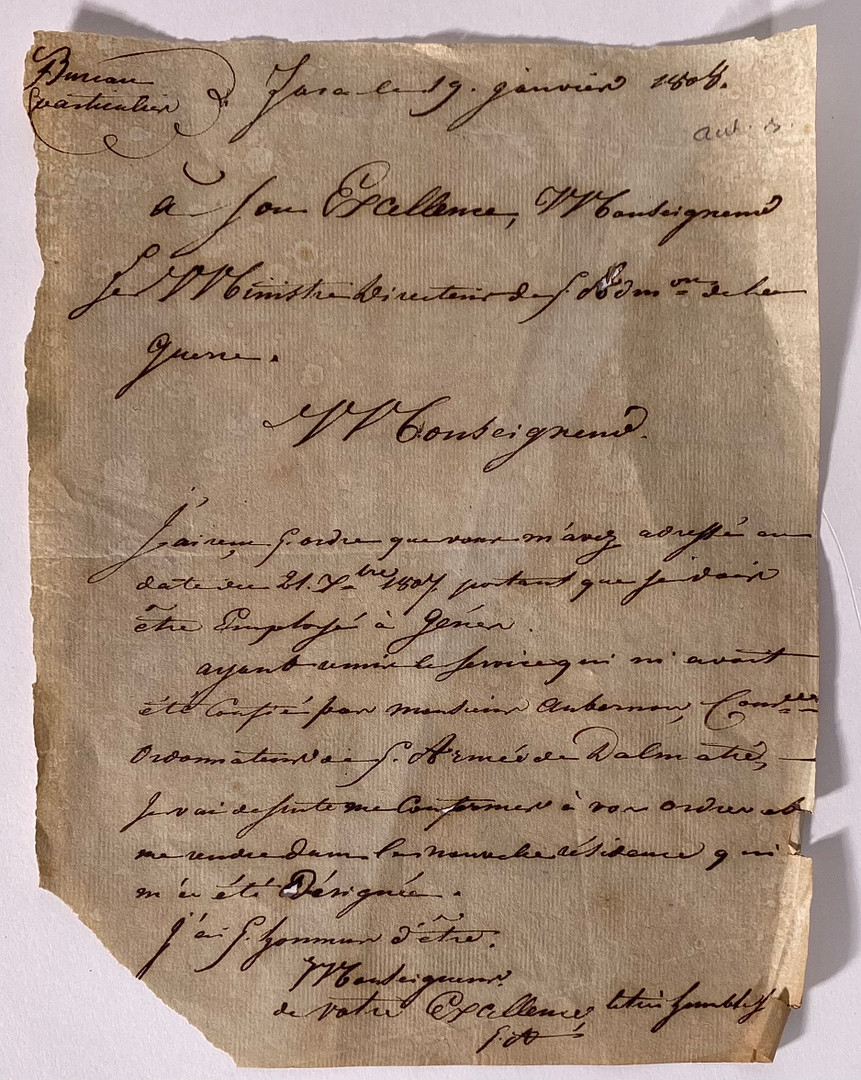 Bureau
particulier
Zara le 19. janvier 1808.
à Son Excellence, Monseigneur
Le Ministre Directeur de l'Adm.on de la
Guerre.
Monseigneur.
J'ai reçu l'ordre que vous m'avez adressé en
date du 21. 7.bre 1807. portant que je dois
être Employé à Gênes.
ayant remis le service qui m'avait
été Confié par monsieur Aubernon,
Ordonnateur de l'Armée de Dalmatie,
Je vai de suite me Conformer à vos ordres et
me rendre dans la nouvelle résidence qui
m'a été Désignée.
J'ai l'honneur d'être.
Monseigneur.
de votre Excellence le très humble